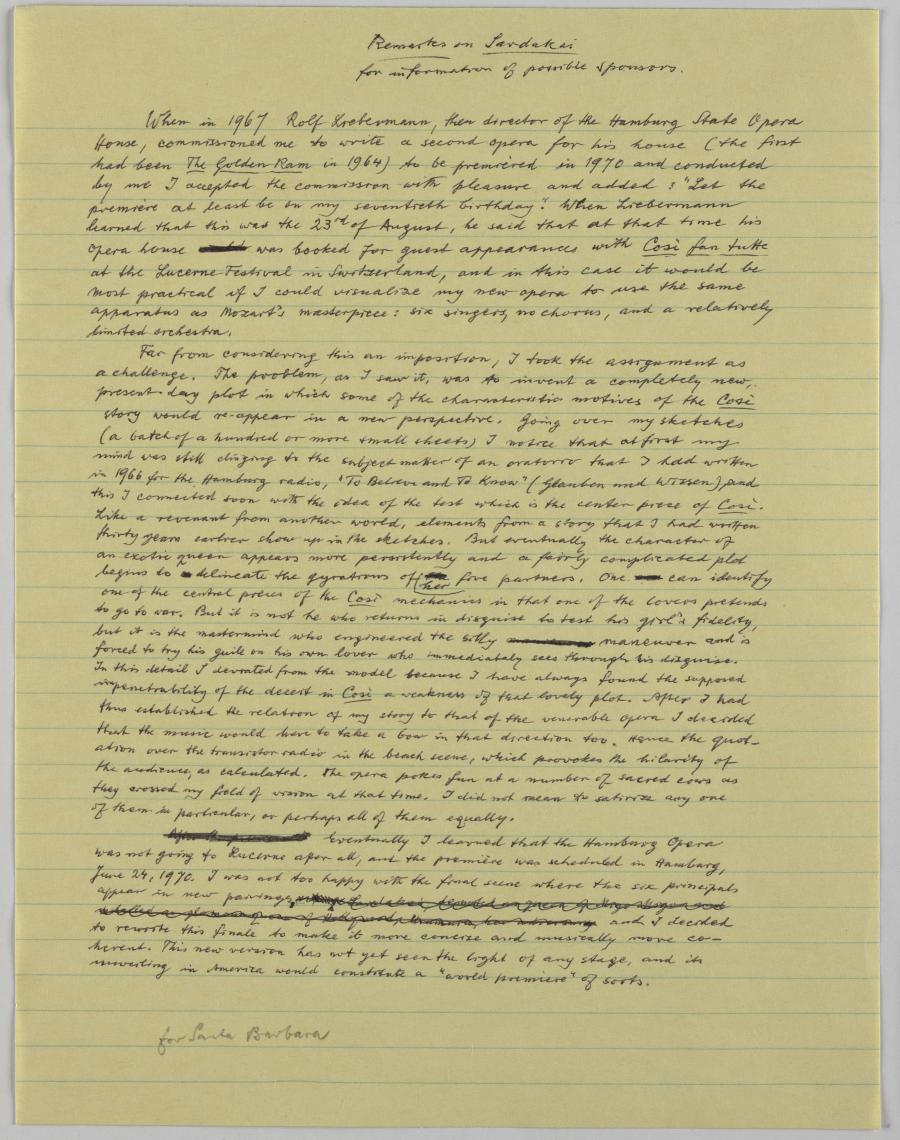 Remarks on Sardakai
for information of possible sponsors.
When in 1967 Rolf Liebermann, then director of the Hamburg State Opera
House, commissioned me to write a second opera for his house (the first
had been The Golden Ram in 1964) to be premièred in 1970 and conducted
by me I accepted the commission with pleasure and added: "Let the
première at least be on my seventieth birthday." When Liebermann
learned that this was the 23rd of August, he said that at that time his
opera house was booked for guest appearances with Così fan tutte
at the Lucerne Festival in Switzerland, and in this case it would be
most practical if I could visualize my new opera to use the same
apparatus as Mozart's masterpiece: six singers, no chorus, and a relatively
limited orchestra.
Far from considering this an imposition, I took the assignment as
a challenge. The problem, as I saw it, was to invent a completely new,
present-day plot in which some of the characteristic motives of the Così
story would re-appear in a new perspective. Going over my sketches
(a batch of a hundred or more small sheets) I notice that at first my
mind was still clinging to the subject matter of an oratorio that I had written
in 1966 for the Hamburg radio, "To Believe and To Know" (Glauben und Wissen), and
this I connected soon with the idea of the test which is the center piece of Così.
Like a revenant from another world, elements from a story that I had written
thirty years earlier show up in the sketches. But eventually the character of
an exotic queen appears more persistently and a fairly complicated plot
begins to delineate the gyrations of her five partners. One can identify
one of the central pieces of the Così mechanics in that one of the lovers pretends
to go to war. But it is not he who returns in disguise to test his girl's fidelity,
but it is the mastermind who engineered the silly maneuver and is
forced to try his guile on his own lover who immediately sees through his disguise.
In this detail I deviated from the model because I have always found the supposed
impenetrability of the deceit in Così a weakness of that lovely plot. After I had
thus established the relation of my story to that of the venerable opera I decided
that the music would have to take a bow in that direction too. Hence the quot-
ation over the transistor radio in the beach scene, which provokes the hilarity of
the audience, as calculated. The opera pokes fun at a number of sacred cows as
they crossed my field of vision at that time. I did not mean to satirize any one
of them in particular, or perhaps all of them equally.
Eventually I learned that the Hamburg Opera
was not going to Lucerne after all, and the première was scheduled in Hamburg,
June 24, 1970. I was not too happy with the final scene where the six principals
appear in new pairings,
and I decided
to rewrite this finale to make it more concise and musically more co-
herent. This new version has not yet seen the light of any stage, and its
unveiling in America would constitute a "world première" of sorts.
for Santa Barbara